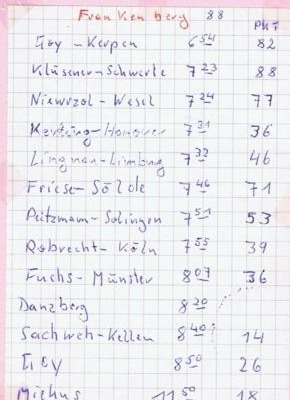 Frankenberg 88 PKT
Goy - Kerpen 6 54 82
Klüsener - Schwerte 7 23 88
Niewrzol - Wesel 7 24 77
Kersting - Hanover 7 31 36
Lingnau - Limburg 7 33 46
Friese - Sölde 7 46 71
Putzmann - Solingen 7 51 53
Robrecht - Köln 7 55 39
Fuchs - Münster 8 07 36
Danzberg 8 20
Sachweh - Kellen 8 40 14
Goy 8 50 26
11 50 18